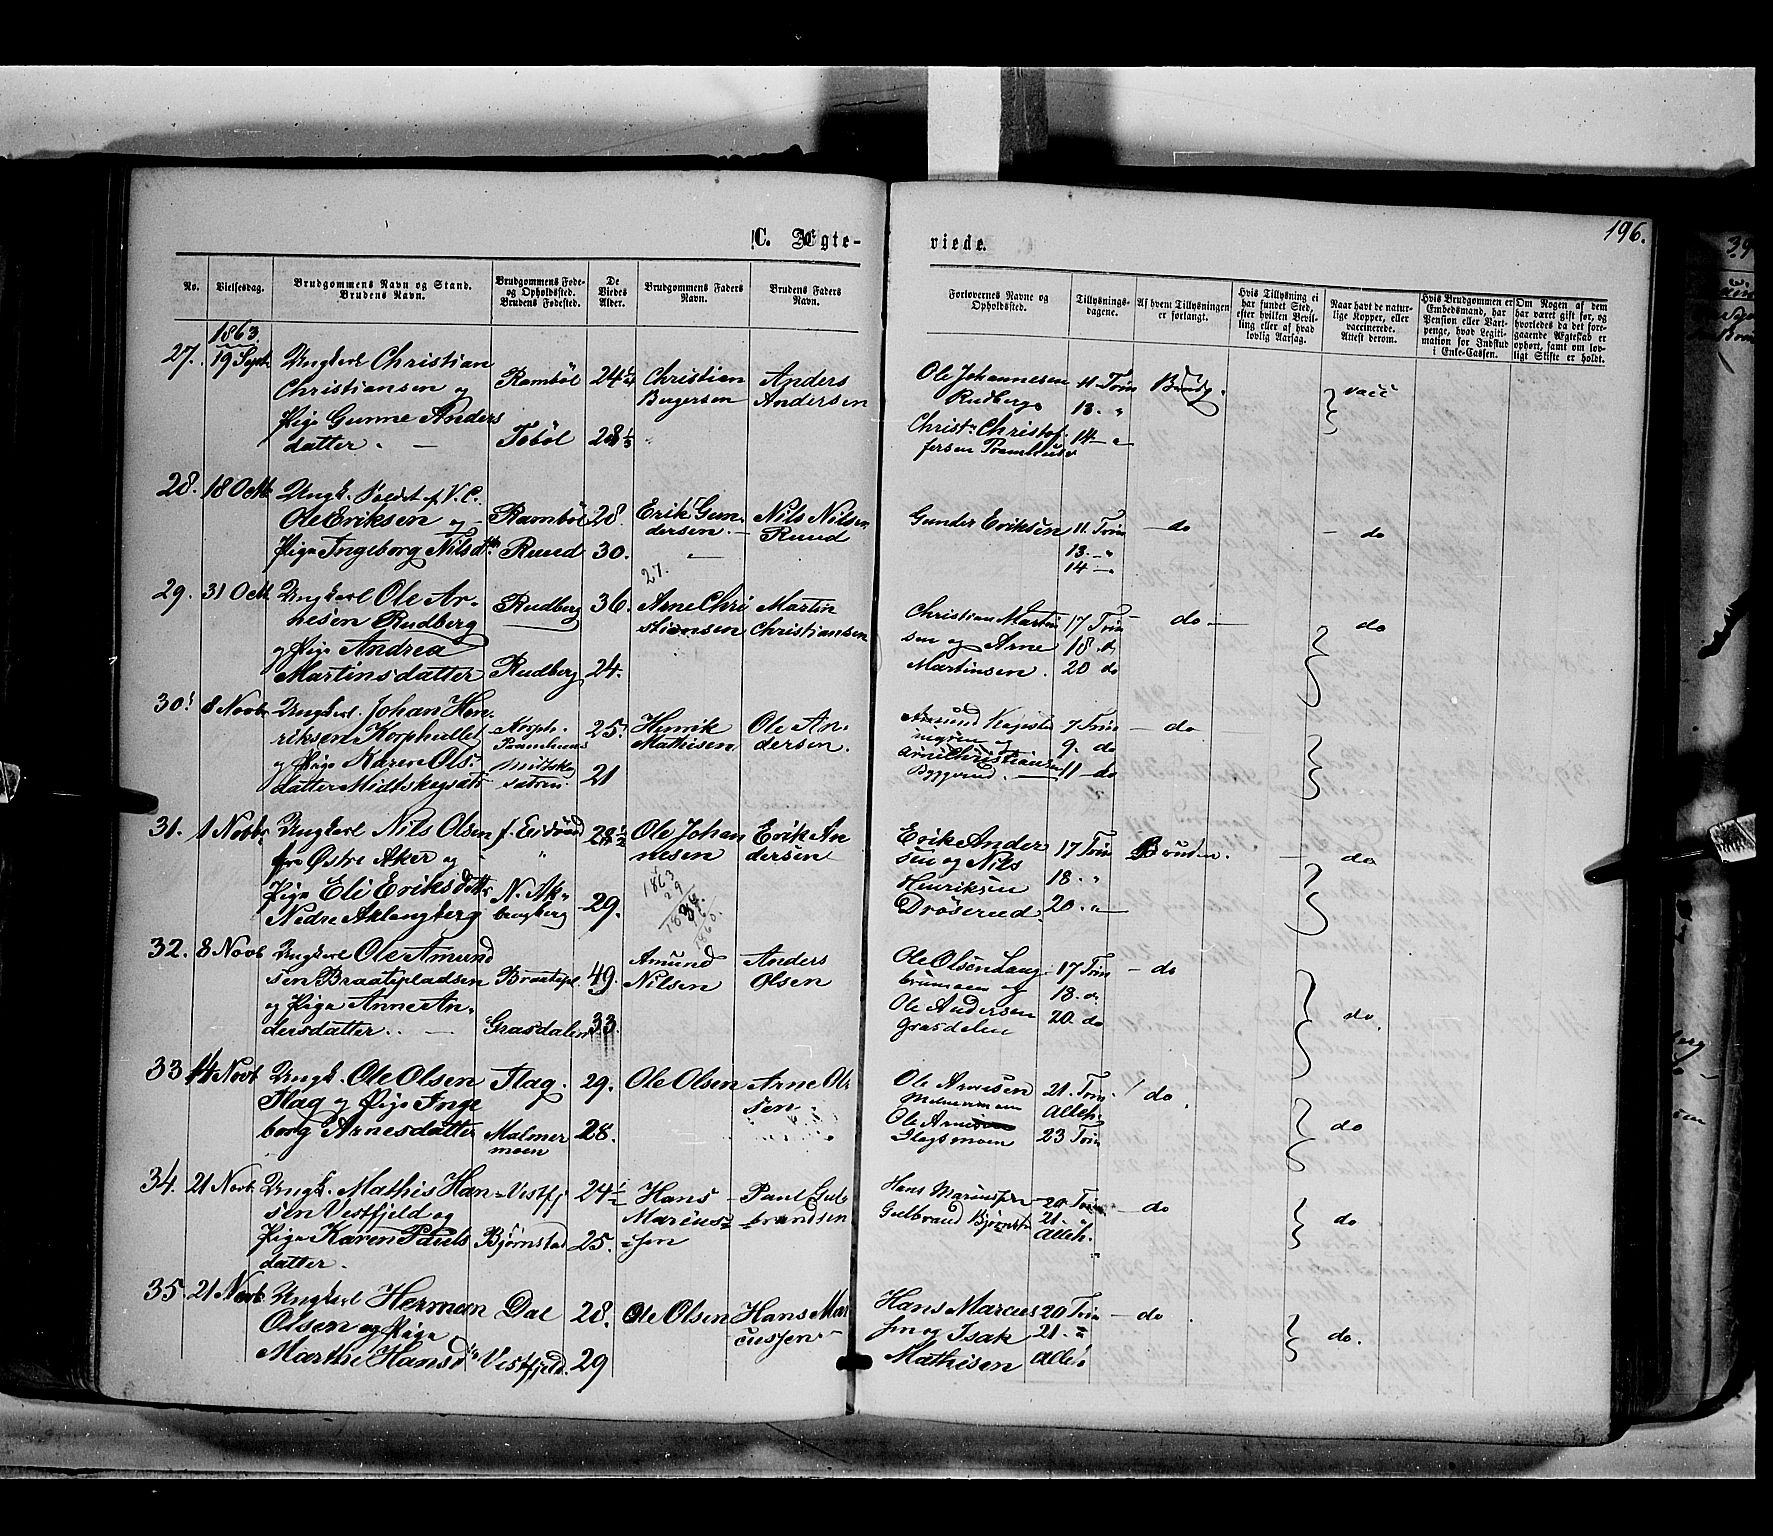 196.
C. Ægte-
viede.
No.
Vielsesdag.
Brudgommens Navn og Stand.
Brudens Navn.
Brudgommens Føde-
og Opholdssted.
Brudens Fødested.
De
Viedes
Alder.
Brudgommens Faders
Navn.
Brudens Faders
Navn.
Forlovernes Navne og
Opholdssted.
Tillysnings-
dagene.
Af hvem Tillysningen
er forlangt.
Hvis Tillysning ei
har fundet Sted,
efter hvilken Bevil-
ling eller af hvad
lovlig Aarsag.
Naar havt de natur-
lige Kopper, eller
vaccinerede.
Attest derom.
Hvis Brudgommen er
Embedsmand, har
Pension eller Vart-
penge, hvad Legiti-
mation for Indskud
i Enke-Cassen.
Om Nogen af dem
har været gift før, og
hvorledes da det fore-
gaaende Ægteskab er
ophørt, samt om lov-
ligt Skifte er holdt.
1863.
27. 19 Sept. Ungkarl Christian
Christiansen og
Pige Gunne Anders
datter. —
Rambøl
Tobøl
24 1/4
28 1/3
Christian
Bergersen
Anders
Andersen
Ole Johannesen
Rudberg
Christ. Christof
fersen Pramhuus
11 Trin
13. "
14 — "
Brudg.
vacc
28. 18 Octb. Ungk. Soldat f V. C.
Ole Eriksen og
Pige Ingeborg Nilsdtr.
Rambøl
Ruud
28.
30.
Erik Gun
dersen. —
Nils Nilsen
Ruud
Gunder Eriksen
11. Trin
13. — "
14 — "
— do
— do
29. 31 Octb. Ungkarl Ole Ar-
nesen Rudberg
og Pige Andrea
Martinsdatter
Rudberg
Rudberg
36.
24.
27.
Arne Chri
stiansen
Martin
Christiansen
Christian Martin
sen og Arne
Martinsen.
17 Trin
18. do
20 do
— do —
do
30. 8 Novbr Ungkarl. Johan Hen-
riksen Korphullet
og Pige Karen Ols-
datter Midtskogsæt
Korph.
Pramhuus
Midtskog
sætren.
25.
21
Henrik
Mathisen
Ole An-
dersen.
Arne Christiansen
Byggerud. —
7 Trin
9. do
11 — do
— do
31. 1 Novbr Ungkarl Nils Olsen
fra Østre Aker og
Pige Eli Eriksdatter
Nedre Aklangberg
N. Ak-
langberg
28 1/2
29.
Ole Johan
nesen
1863
29
Erik An
dersen
Erik Ander
sen og Nils
Henriksen
Drøserud.
17 Trin
18. "
20. "—
Bruden.
— do
32. 8 Novb Ungkarl Ole Amund
sen Braatepladsen
og Pige Anne An-
dersdatter. . —
Braatepl.
Grasdalen
49.
33.
Amund
Nilsen
Anders
Olsen
Ole Olsen Lang-
brumoen og
Ole Andersen
Grasdalen
17 Trin
18. do
20. do
— do
do.
33 14 Novb Ungk. Ole Olsen
Flag og Pige Inge
borg Arnesdatter
Flag.
Malmer
moen
29.
28.
Ole Olsen
Arne Ol
sen.
Ole Arnesen
Malmermoen
Ole Arnesen
Flagsmoen
21. Trin.
Alleh.
23 Trin
do
do
34. 21 Novb. Ungk. Mathis Han-
sen Vestfjeld og
Pige Karen Pauls
datter.
Vestfj
Bjørnstad
24 1/2
25.
Hans
Marcus-
-sen
Paul Gul-
brandsen
Hans Marcussen
Gulbrand Bjørnstad
20 Trin
21. "
Alleh.
— do
do
35. 21 Novb Ungkarl Herman
Olsen og Pige
Marthe Hansd.
Dal
Vestfjeld.
28.
29
Ole Olsen
Hans Mar
cussen
Hans Marcus
sen og Isak
Mathisen
20 Trin
21. "
Alleh
— do
do.